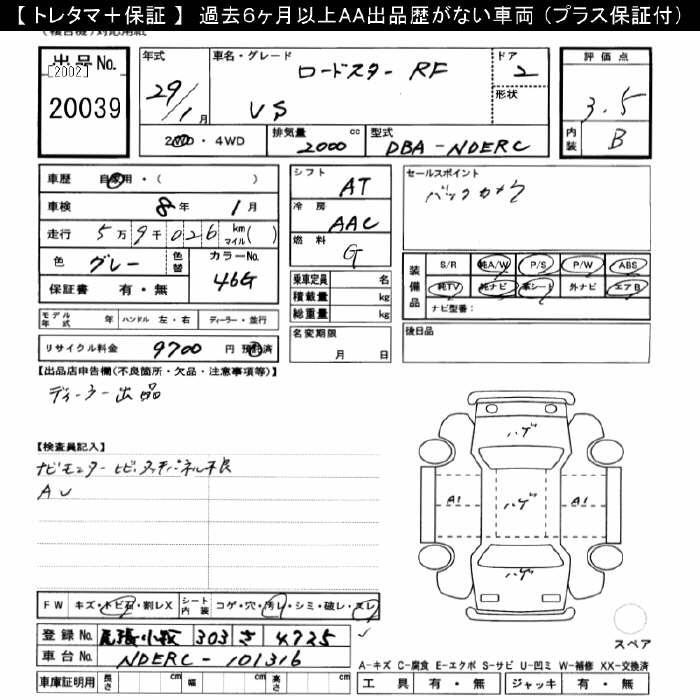 【トレタマ＋保証】 過去6ヶ月以上AA出品歴がない車両（プラス保証付）
出品No. [2002] 20039
年式 29/1月
車名・グレード ロードスター RF VS
ドア 2
形状
評価点 3.5
内装 B
2WD・4WD
排気量 2000 cc
型式 DBA-NDERC
車歴 自家用・( )
車検 8年 1月
走行 5万9千026 km マイル( )
色 グレー 色替 カラーNo. 46G
保証書 有・無
シフト AT
冷房 AAC
燃料 G
乗車定員 名
積載量 kg
総重量 kg
セールスポイント
バックカメラ
装備品 S/R 純A/W P/S P/W ABS
純TV 純ナビ 革シート 外ナビ エアB
ナビ型番：
モデル年式 年 ハンドル 左・右 ディーラー・並行
リサイクル料金 9700 円 預託済
名変期限 月 日
後日品
【出品店申告欄(不良箇所・欠品・注意事項等)】
ディーラー出品
【検査員記入】
ナビモニターヒビ、タッチパネル不良
AU
ハゲ
A1 ハゲ A1
ハゲ
FW キズ・トビ石・割レX シート内装 コゲ・穴・汚レ・シミ・破レ・スレ
登録No. 尾張小牧 303 さ 4725
車台No. NDERC-101316
車庫証明用 長さ cm 幅 cm 高さ cm
スペア
A-キズ C-腐食 E-エクボ S-サビ U-凹ミ W-補修 XX-交換済
工具 有・無 ジャッキ 有・無